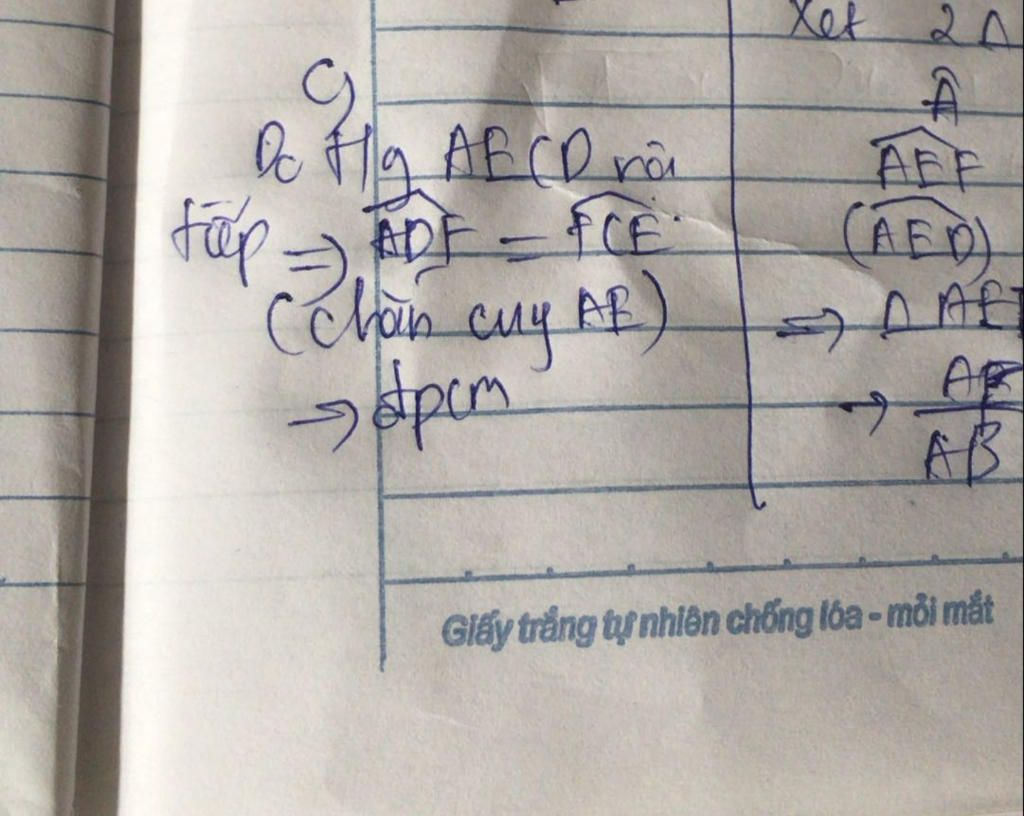 c)
Do tứg AECD nội
tiếp => ADF = FCE
(chắn cung AE)
→ đpcm
Xét 2 Δ
Â
AEF
(AED)
=> Δ AE
→ AE
AB
Giấy trắng tự nhiên chống lóa - mỏi mắt